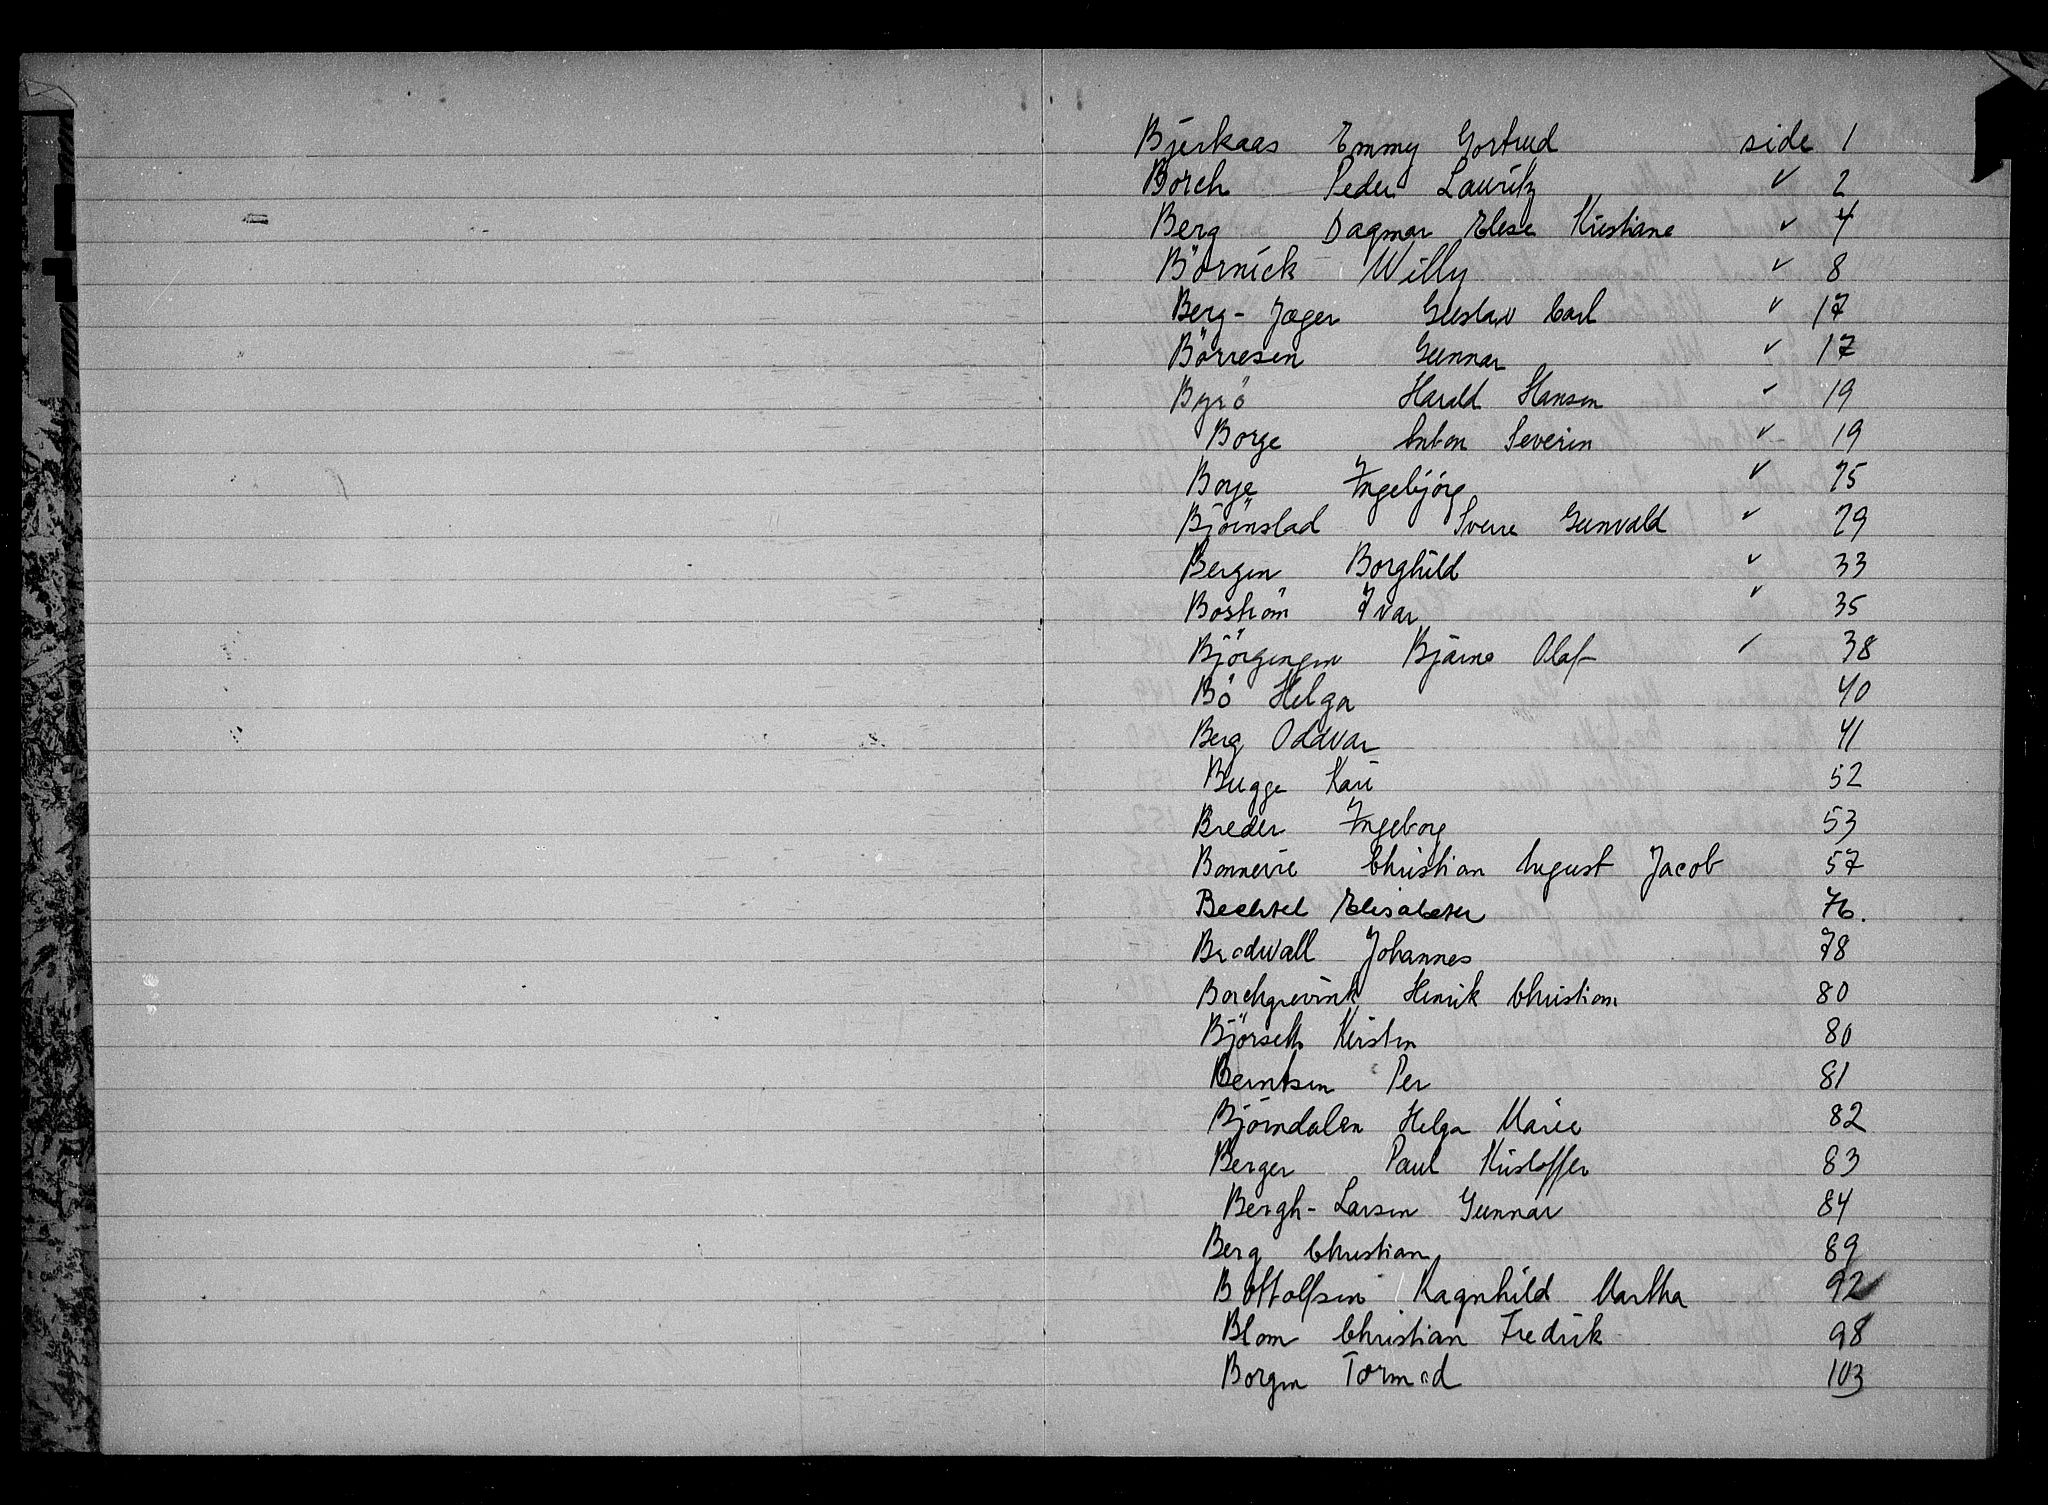 Bjerkaas Emmy Gertrud side 1
Borch Peder Lauritz " 2
Berg Dagmar Elese Kristiane " 4
Börnick Willy " 8
Berg-Jæger Gustav Carl " 17
Börresen Gunnar " 17
Byrö Harald Hansen " 19
Borge Anton Severin " 19
Borge Ingebjörg " 25
Björnstad Sverre Gunvald " 29
Bergen Borghild " 33
Boström Ivar " 35
Björgengen Bjarne Olaf " 38
Bö Helga 40
Berg Oddvar 41
Bugge Kari 52
Breder Ingeborg 53
Bonnevie Christian August Jacob 57
Bechtel Elisabeth 76.
Brodwall Johannes 78
Borchgrevink Henrik Christian 80
Björseth Kirsten 80
Berntsen Per 81
Björndalen Helga Marie 82
Berger Paul Kristoffer 83
Bergh-Larsen Gunnar 84
Berg Christian 89
Bottolfsen Ragnhild Martha 92
Blom Christian Fredrik 98
Borgen Tormod 103